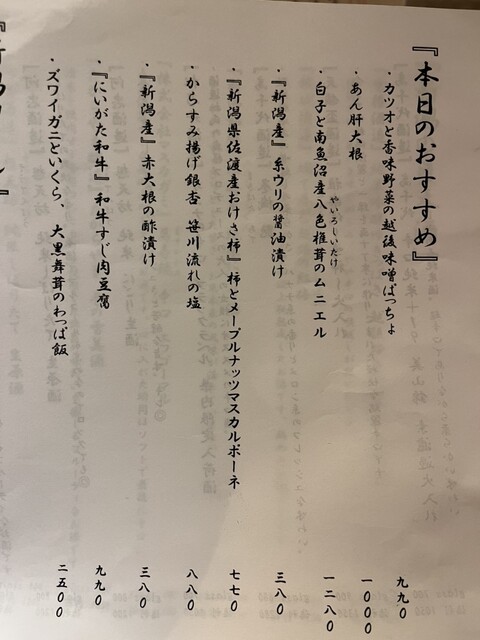 『本日のおすすめ』
・カツオと香味野菜の越後味噌ばっちょ 九九〇
・あん肝大根 一〇〇〇
・白子と南魚沼産八色椎茸のムニエル 一二八〇
やいろしいたけ
・『新潟産』糸ウリの醤油漬け 三八〇
・『新潟県佐渡産おけさ柿』柿とメープルナッツマスカルポーネ 七七〇
・からすみ揚げ銀杏 笹川流れの塩 八八〇
・『新潟産』赤大根の酢漬け 三八〇
・『にいがた和牛』和牛すじ肉豆腐 九九〇
・ズワイガニといくら、大黒舞茸のわっぱ飯 二五〇〇